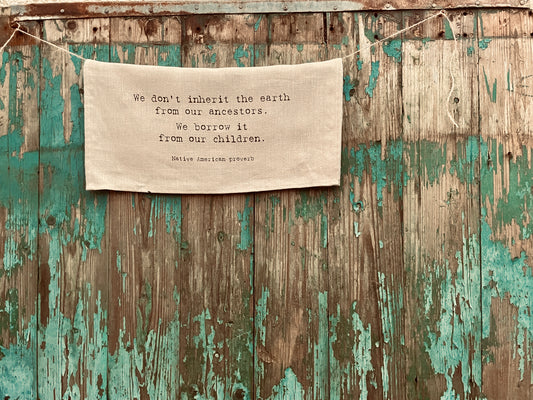 We don't inherit the earth
from our ancestors.
We borrow it
from our children.
Native American proverb